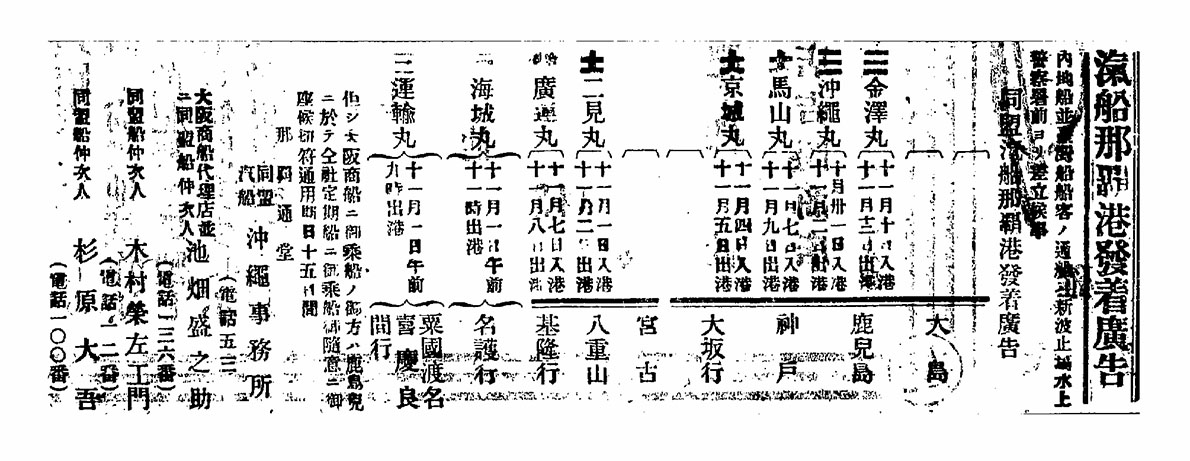 汽船那覇港發着廣告
内地船並臺灣船船客ノ通船ハ新波止場水上
警察署前ヨリ差立候事
同盟汽船那覇港發着廣告
大島
三三金澤丸
十一月十日入港
十一月三日出港
鹿兒島
沖繩丸
十月卅一日入港
十一月二日出港
馬山丸
十一月七日入港
十一月九日出港
神戸
京城丸
十一月四日入港
十一月五日出港
大坂行
宮古
二見丸
十一月一日入港
十一月二日出港
八重山
廣運丸
十一月七日入港
十一月八日出港
基隆行
海城丸
十一月一日午前
十一時出港
名護行
三運輸丸
十一月一日午前
九時出港
粟國渡名
喜慶良
間行
但シ大阪商船ニ御乘船ノ御方ハ鹿島兒
ニ於テ仝社定期船ニ御乘船御隨意ニ御
座候切符通用期日十五日間
那覇通堂
同盟
汽船
沖繩事務所
(電話五三)
大阪商船代理店並
ニ同盟船仲次人
池畑盛之助
(電話一三六番)
同盟船仲次人
木村榮左工門
(電話一二番)
同盟船仲次人
杉原大吾
(電話一〇〇番)